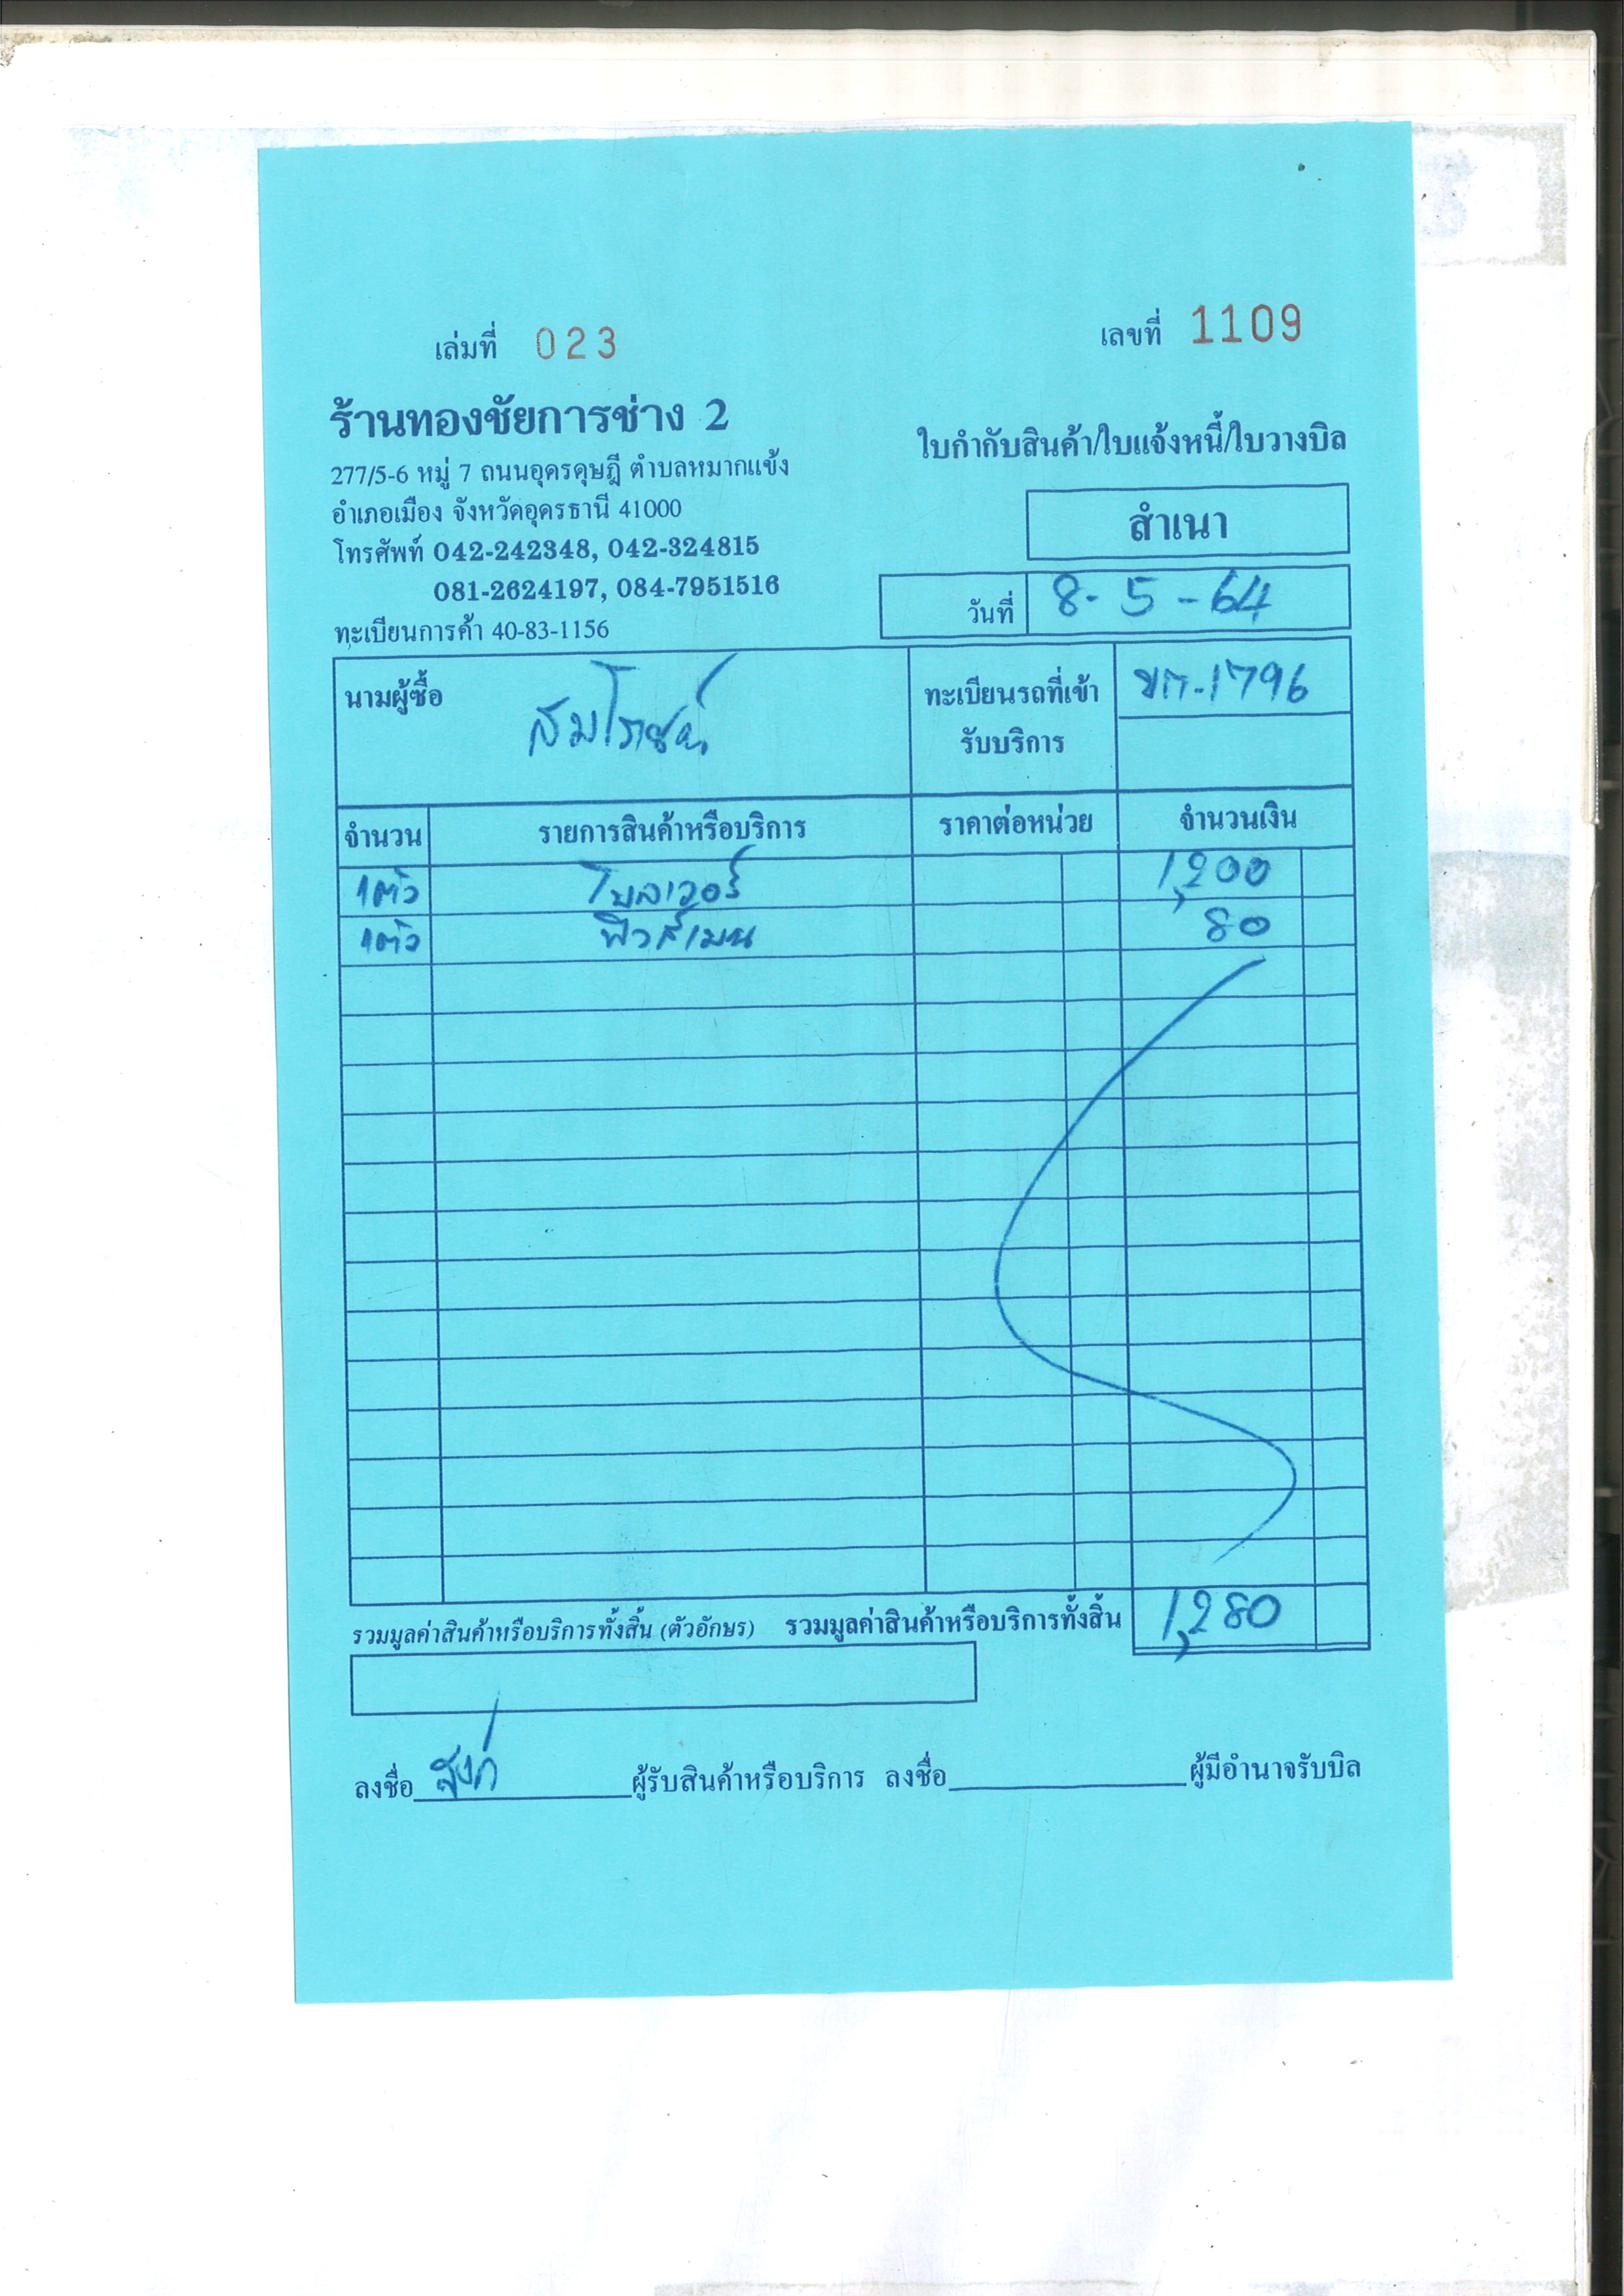 เล่มที่ 023 เลขที่ 1109
ร้านทองชัยการช่าง 2
ใบกำกับสินค้า/ใบแจ้งหนี้/ใบวางบิล
277/5-6 หมู่ 7 ถนนอุดรดุษฎี ตำบลหมากแข้ง
อำเภอเมือง จังหวัดอุดรธานี 41000
สำเนา
โทรศัพท์ 042-242348, 042-324815
081-2624197, 084-7951516
วันที่ 8-5-64
ทะเบียนการค้า 40-83-1156
นามผู้ซื้อ ทะเบียนรถที่เข้า รับบริการ 1796
จำนวน รายการสินค้าหรือบริการ ราคาต่อหน่วย จำนวนเงิน
1ตัว โบลเวอร์ 1,200
1ตัว ฟิวส์เมน 80
รวมมูลค่าสินค้าหรือบริการทั้งสิ้น (ตัวอักษร) รวมมูลค่าสินค้าหรือบริการทั้งสิ้น 1,280
ลงชื่อ ผู้รับสินค้าหรือบริการ ลงชื่อ ผู้มีอำนาจรับบิล